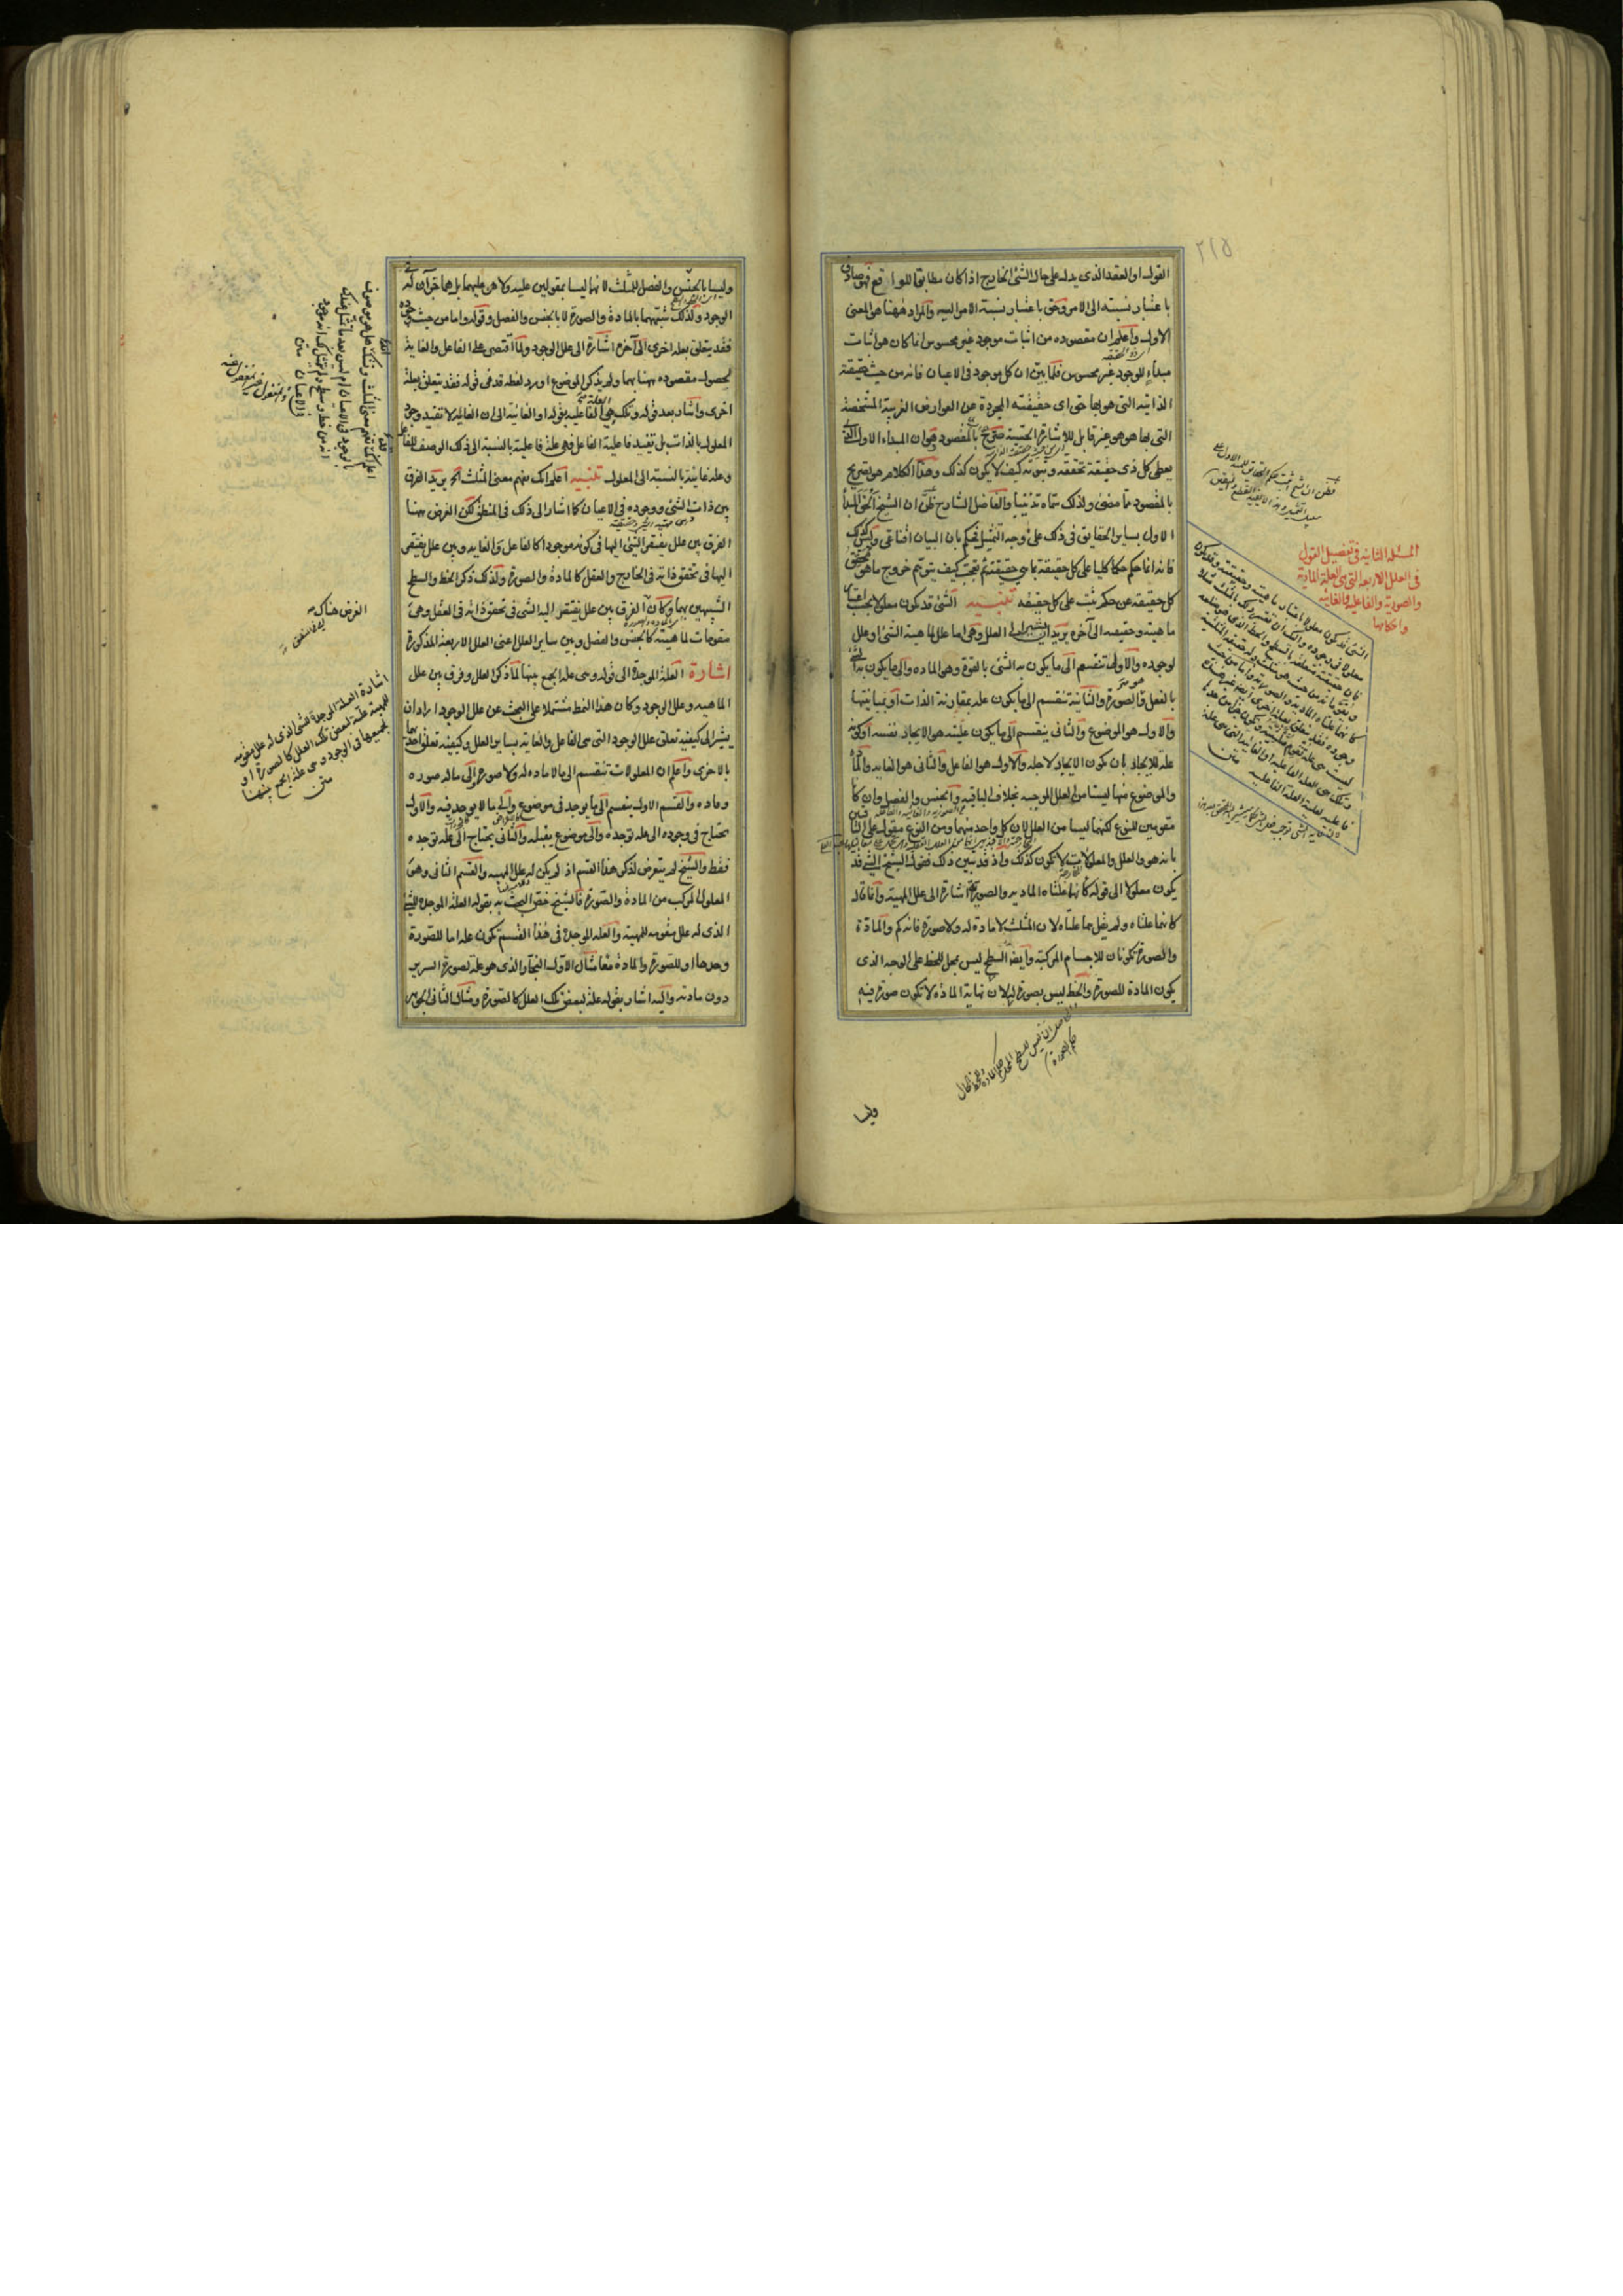 ٢١٥
القول او العقد الذى يدل على حال الشئ الخارج اذا كان مطابقا للواقع فهو صادق
باعتبار نسبته الى الامر وحق باعتبار نسبة الامر اليه والمراد ههنا هو المعنى
الاول واعلم ان مقصوده من اثبات موجود غير محسوس انما كان هو اثبات
مبداء للوجود غير محسوس فلما بين ان كل موجود فى الاعيان فانه من حيث حقيقته
الذاتيه التى هو بها حق اى حقيقته المجردة عن العوارض الغريبة المشخصة
التى بها هو هو غير قابل للاشارة الحسية صرح بالمقصود وهو ان المبداء الاول الذى
يعطى كل ذى حقيقة تحققه وثبوته كيف لا يكون كذلك وهذا الكلام هو تصريح
بالمقصود مما مضى ولذلك سماه تذنيبا والفاضل الشارح ظن ان الشيخ الحق المبدأ
الاول بساير الحقايق فى ذلك على وجه التمثيل فحكم بان البيان اقناعى وليس كذلك
فانه انما حكم حكما كليا على كل حقيقة بما هى حقيقة ثم تعجب كيف يتوهم خروج ما هو محقق
كل حقيقة عن حكم ثبت على كل حقيقه تنبيه الشئ قد يكون معلولا بحسب اعتبار
ماهيته وحقيقته الى آخره يريد ان يشير الى العلل وهى اما علل لماهية الشئ او علل
لوجوده والاولى تنقسم الى ما يكون به الشئ بالقوة وهو الماده والى ما يكون به الشئ
بالفعل والصورة والثانية تنقسم الى ما يكون علة بمقارنة الذات او بمباينتها
والاول هو الموضوع والثانى ينقسم الى ما يكون عليته هو الايجاد نفسه او كونه
علة للايجاد بان يكون الايجاد لاجله والاول هو الفاعل والثانى هو الغايه والمادة
والموضوع منها ليستا من العلل الموجبه بخلاف الباقيه والجنس والفصل وان كانا
مقومين للنوع لكنهما ليسا من العلل لان كل واحد منهما ومن النوع مقول على الثانى
بانه هو والعلل والمعلولات لا تكون كذلك واذ قد تبين ذلك فقول الشيخ الشئ قد
يكون معلولا الى قوله كانهما علتاه الماديه والصوريه اشارة الى علل المهية وانما قال
كانهما علتاه ولم يقل هما علتاه لان المثلث لا مادة له ولا صورة فانه كم والمادة
والصورة تكونان للاجسام المركبة وايضا السطح ليس بمحل للخط على الوجه الذى
يكون المادة للصورة والخط ليس بصورة له لان نهاية المادة لا تكون صورة فيه
المسئله الثانيه فى تفصيل القول
فى العلل الاربعة التى هى العلة المادية
والصورية والفاعلية والغائيه
واحكامها
الشئ قد يكون معلولا باعتبار ماهيته وحقيقته وقد يكون
معلولا فى وجوده واليك ان تعتبر ذلك بالمثلث مثلا
فان حقيقته متعلقة بالسطح والخط الذى هو ضلعه
ويقومانه من حيث هو مثلث وله حقيقة المثلثية
كانهما علتاه المادية والصورية واما من حيث
وجوده فقد يتعلق بعلة اخرى ايضا غير هذه
ليست هى علة تقوم مثلثيته وتكون جزءا من حدها
وتلك هى العلة الفاعلية او الغائية التى هى علة
فاعلية لعلية العلة الفاعلية متن
وليسا
وليسا بالجنس والفصل للمثلث لانهما ليسا بمقولين عليه ولا هو عليهما بل هما جزآن له فى
الوجود ولذلك شبههما بالمادة والصورة لا بالجنس والفصل وقوله واما من حيث وجوده
فقد يتعلق بعلة اخرى الى آخره اشارة الى علل الوجود ولما اقتصر على الفاعل والغاية
لحصول مقصوده ههنا بهما ولم يذكر الموضوع اورد لفظه قد فى قوله فقد يتعلق بعلة
اخرى واشار بعد قوله وتلك هى الفاعليه بقوله او الغائية الى ان الغاية لا تفيد وجود
المعلول بالذات بل تفيد فاعلية الفاعل فهى علة فاعلية بالنسبة الى ذلك الوصف للفاعل
وعلة غائية بالنسبة الى المعلول تنبيه اعلم انك تفهم معنى المثلث الخ يريد الفرق
بين ذات الشئ ووجوده فى الاعيان كما اشار الى ذلك فى المنطق لكن الغرض ههنا
الفرق بين علل يفتقر الشئ اليها فى كونه موجودا كالفاعل والغايه وبين علل يفتقر
اليها فى تحقق ذاته فى الخارج والعقل كالمادة والصورة ولذلك ذكر الخط والسطح
الشبيهين بهما وكان الفرق بين علل يفتقر اليه الشئ فى تحقق ذاته فى العقل وهى
مقومات لماهيته كالجنس والفصل وبين ساير العلل اعنى العلل الاربعة المذكورة
اشارة العلة الموجدة الى قوله وهى علة الجمع بينها لما ذكر العلل وفرق بين علل
الماهيه وعلل الوجود وكان هذا النمط مشتملا على البحث عن علل الوجود اراد ان
يشير الى كيفية تعلق علل الوجود التى هى الفاعل والغاية بساير العلل وكيفية تعلق احديهما
بالاخرى واعلم ان المعلولات تنقسم الى ما لا ماده له ولا صورة والى ما له صوره
وماده والقسم الاول ينقسم الى ما يوجد فى موضوع والى ما لا يوجد فيه والاول
يحتاج فى وجوده الى علة توجده والى موضوع يقبله والثانى يحتاج الى علة توجده
فقط والشيخ لم يتعرض لذكر هذا القسم اذ لم يكن له علل المهيه والقسم الثانى وهى
المعلول المركب من المادة والصورة فالشيخ خص البحث به بقوله العلة الموجدة للشئ
الذى له علل مقومه للمهية والعله الموجدة فى هذا القسم تكون علة اما للصورة
وحدها او للصورة والمادة معا مثال الاول النجار والذى هو علة لصورة السرير
دون مادته واليه اشار بقوله علة لبعض تلك العلل كالصورة ومثال الثانى الجوهر
اعلم انك تفهم معنى المثلث وتشك هل هو موصوف
بالوجود فى الاعيان ام ليس بعد ما تمثل عندك
انه من خط وسطح ولم يتمثل لك انه موجود
فى الاعيان متن
الغرض هناك
اشارة العلة الموجدة للشئ الذى له علل مقومه
للمهية علة لبعض تلك العلل كالصورة او
لجميعها فى الوجود وهى علة الجمع بينها
متن